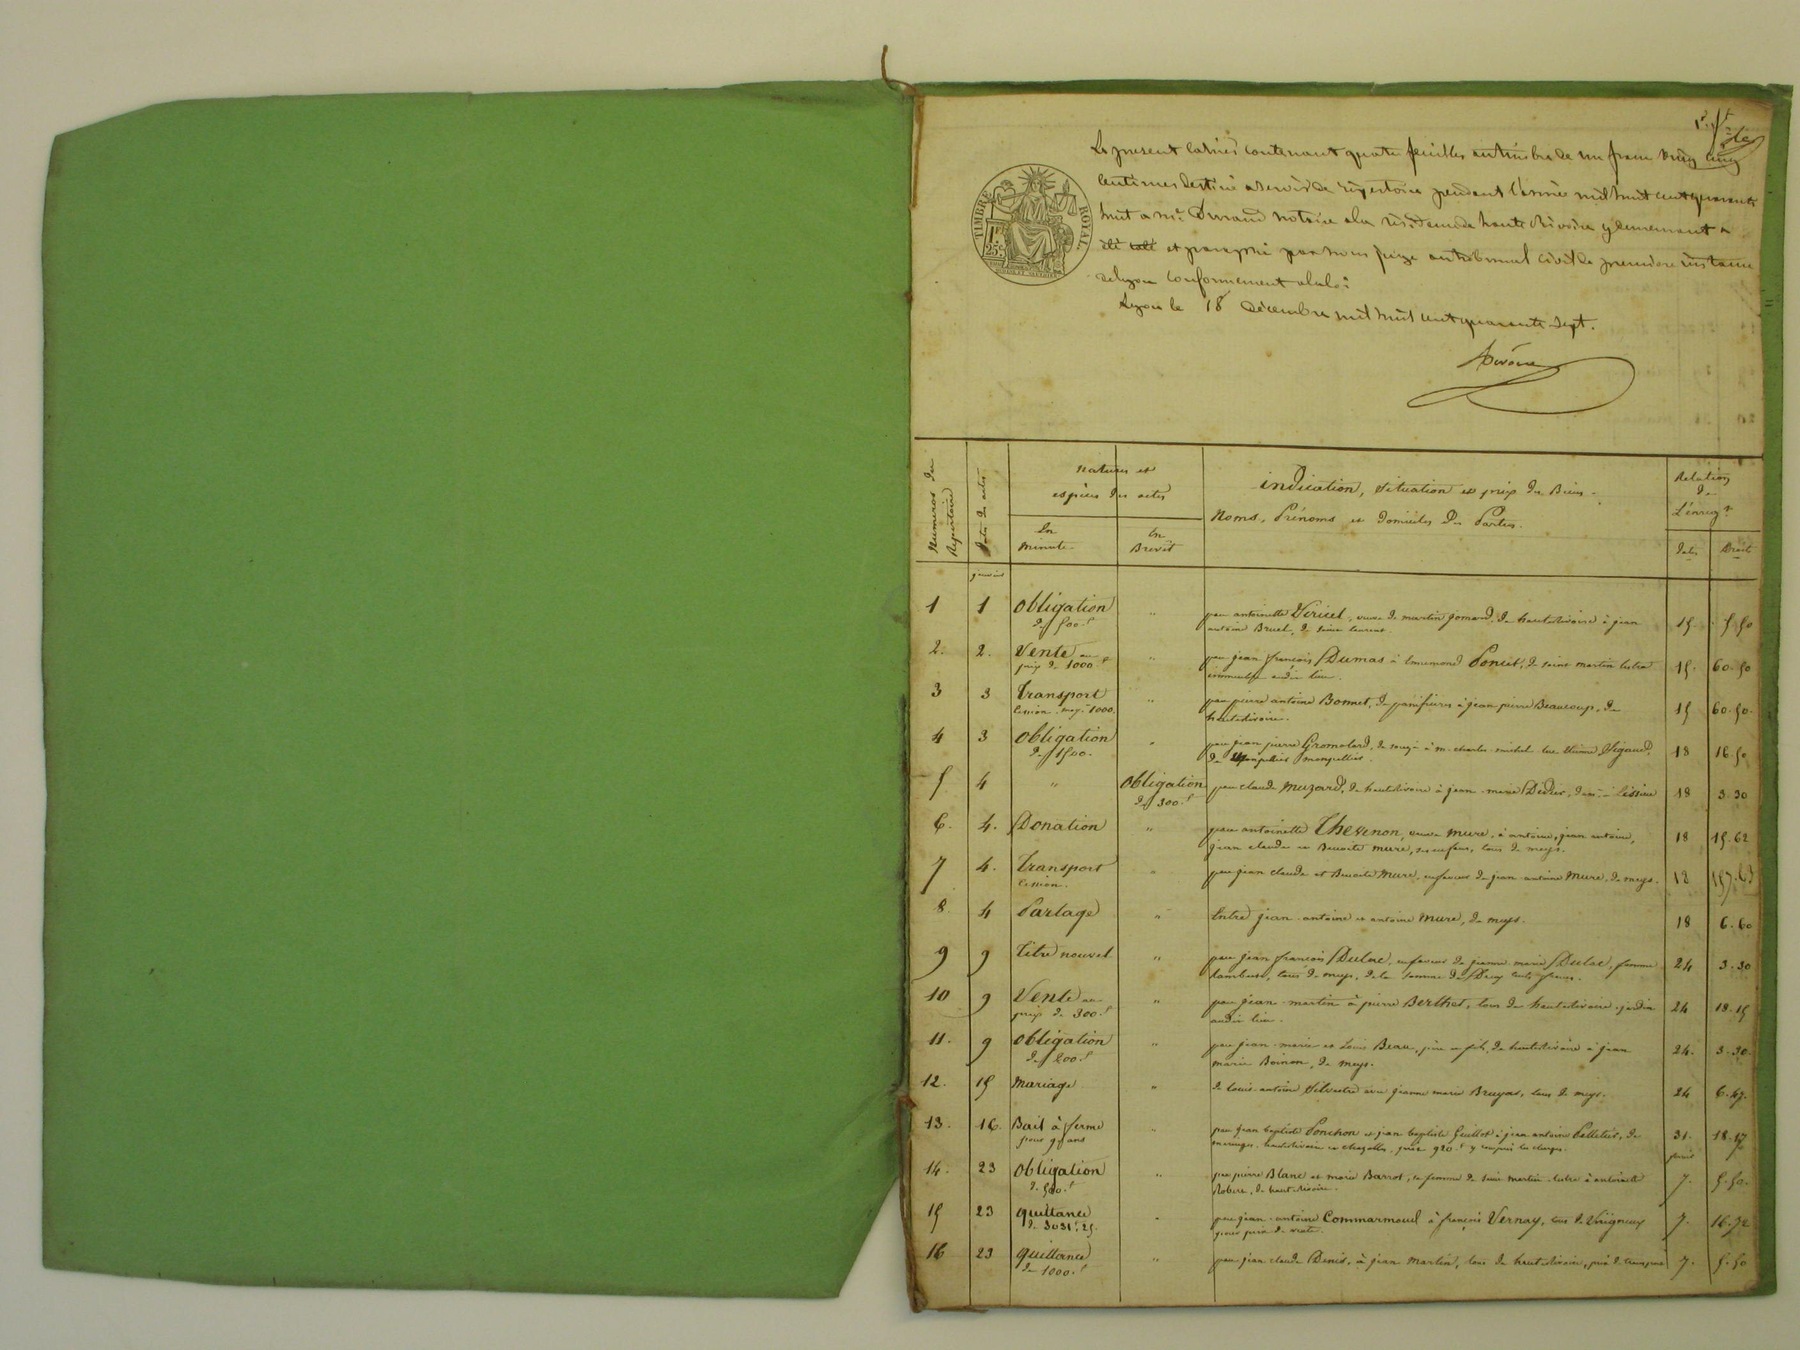 Le present cahier contenant quatre feuilles au timbre de un franc vingt cinq
centimes destiné a servir de répertoire pendant l'année mil huit cent quarante
huit a me. Durand notaire a la résidence de haute Rivoire
et paraphé par nous juge au tribunal civil de premiere instance
de Lyon conformement a la loi
Lyon le 18 décembre mil huit cent quarante sept.
TIMBRE ROYAL.
1F.
25c.
Numéros du Répertoire
Dates des actes
natures et
espèces des actes
En
Minute
En
Brevet
indication, situation et prix des Biens
Noms, Prénoms et Domiciles des Parties.
Relation
de
L'enregt
Dates
Droits
janvier
1 1 Obligation " par antoinette Vericel, veuve de martin Jomard, de hauterivoire à jean 15 5.50
de 500.f antoine Bruel, de saint laurent
2. 2. Vente au " par jean françois Dumas à Ennemond Poncet, de saint martin lestra 15. 60.50
prix de 1000.f immeuble audit lieu.
3 3 Transport " par pierre antoine Bonnet, de panissières à jean pierre Beaucoup, de 15 60.50.
cession moy. 1000. hauterivoire.
4 3 Obligation " par jean pierre Gromolard, de à m. charles michel Sigaud, 18 16.50
de 1500. de montpellier.
5 4 " Obligation par claude Muzard, de hauterivoire à jean marie Didier, 18 3.30
de 300.f
6. 4. Donation " par antoinette Thevenon, veuve Mure, à antoine, jean antoine, 18 15.62
jean claude et Benoite Mure, ses enfans, tous de meys.
7 4. Transport " par jean claude et Benoite Mure, en faveur de jean antoine Mure, de meys. 18
cession.
8 4 Partage " Entre jean antoine et antoine Mure, de meys. 18 6.60
9 9 Titre nouvel " par jean françois Dulac, en faveur de jeanne marie Dulac, femme 24 3.30
tous de meys, de la somme de
10 9 Vente au " par jean martin à pierre Berthet, tous de hauterivoire jardin 24 18.15
prix de 300.f audit lieu.
11. 9 Obligation " par jean marie et Louis Beau, père et fils, de hauterivoire à jean 24. 3.30.
de 200.f marie Boinon, de meys.
12. 15 Mariage " de louis antoine Silvestre avec jeanne marie Bruyas, tous de meys. 24 6.47.
13. 16. Bail à ferme " par jean baptiste Ponchon et jean baptiste Guillot à jean antoine Pelletier, de 31. 18.17
pour 9 ans maringes, hauterivoire et chazelles, prix 920.f y compris les charges.
février
14. 23 Obligation " par pierre Blanc et marie Barrot, sa femme de saint martin lestra à antoinette 7. 5.50.
de 500.f Robert, de hauterivoire.
15 23 quittance " par jean antoine Commarmond à françois Vernay, tous de Virigneux 7. 16.72
de 3031.f,25. pour prix de vente.
16 23 quittance " par jean claude Denis, à jean Martin, tous de hauterivoire, prix de 7. 5.50
de 1000.f